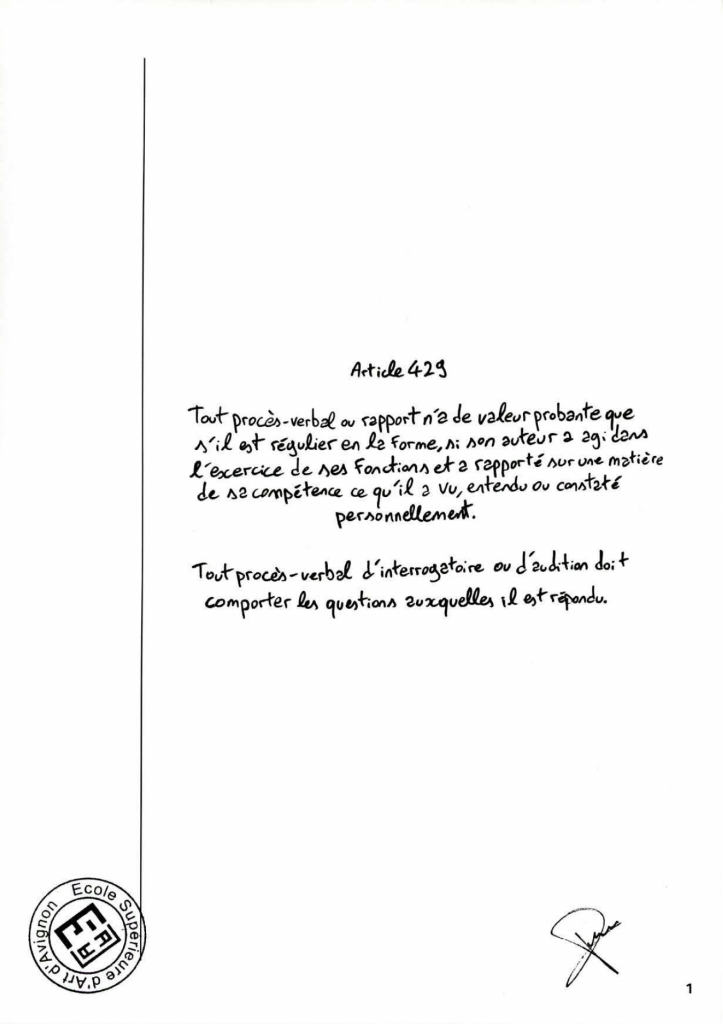 Article 429
Tout procès-verbal ou rapport n'a de valeur probante que
s'il est régulier en la forme, si son auteur a agi dans
l'exercice de ses fonctions et a rapporté sur une matière
de sa compétence ce qu'il a vu, entendu ou constaté
personnellement.
Tout procès-verbal d'interrogatoire ou d'audition doit
comporter les questions auxquelles il est répondu.
Ecole Superieure d'Art d'Avignon
1